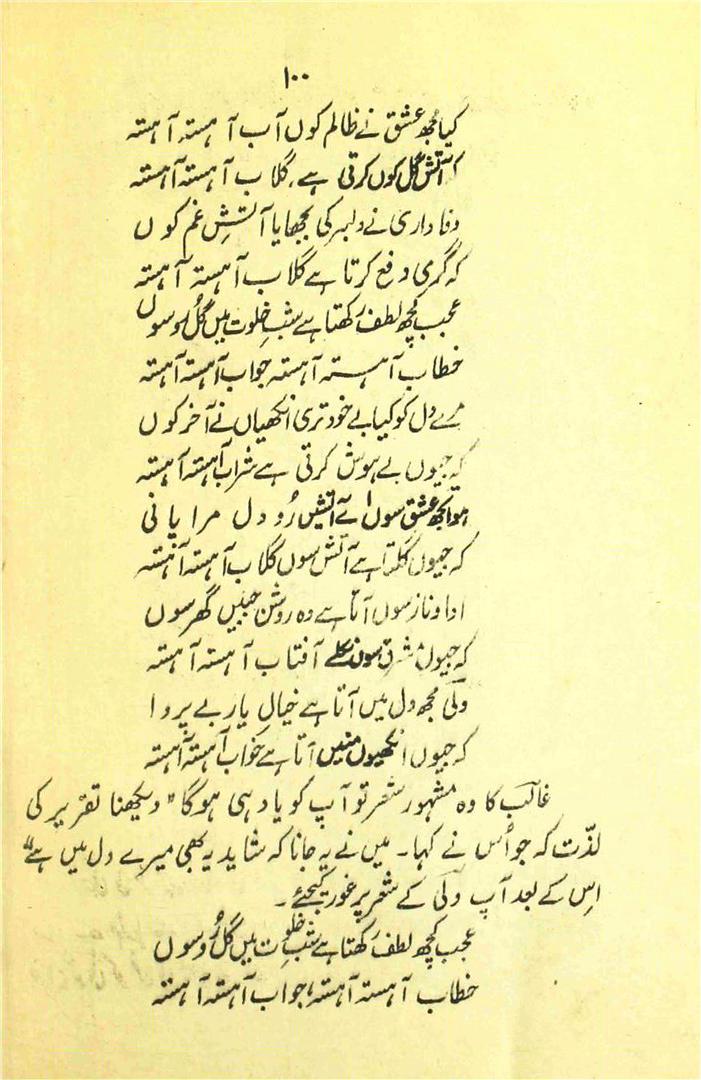 ۱۰۰
کیا مجھ عشق نے ظالم کوں آب آہستہ آہستہ
کہ آتش گل کوں کرتی ہے، گلاب آہستہ آہستہ
وفاداری نے دلبر کی بجھایا آتشِ غم کوں
کہ گرمی دفع کرتا ہے گلاب آہستہ آہستہ
عجب کچھ لطف رکھتا ہے شبِ خلوت میں گل رو سوں
خطاب آہستہ آہستہ جواب آہستہ آہستہ
مرے دل کو کیا بے خود تری انکھیاں نے آخر کوں
کہ جیوں بے ہوش کرتی ہے شراب آہستہ آہستہ
ہوا تجھ عشق سوں اے آتشیں رُو دل مرا پانی
کہ جیوں گلتا ہے آتش سوں گلاب آہستہ آہستہ
ادا و ناز سوں آتا ہے وہ روشن جبیں گھر سوں
کہ جیوں مشرق سوں نکلے آفتاب آہستہ آہستہ
ولیؔ مجھ دل میں آتا ہے خیالِ یار بے پروا
کہ جیوں انکھیوں منیں آتا ہے خواب آہستہ آہستہ
غالبؔ کا وہ مشہور شعر تو آپ کو یاد ہی ہوگا "دیکھنا تقریر کی
لذّت کہ جو اُس نے کہا۔ میں نے یہ جانا کہ شاید یہ بھی میرے دل میں ہے"
اِس کے بعد آپ ولیؔ کے شعر پر غور کیجئے۔
عجب کچھ لطف رکھتا ہے شبِ خلوت میں گل رُو سوں
خطاب آہستہ آہستہ، جواب آہستہ آہستہ